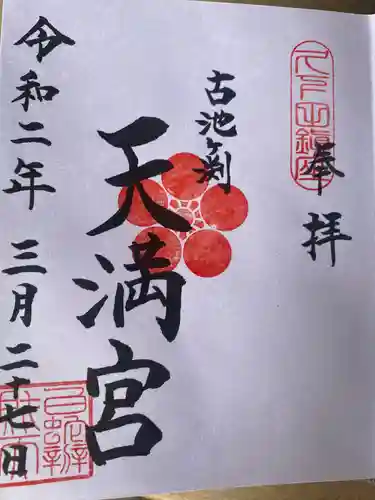 奉拝
古池ヶ渕
天満宮
令和二年 三月 二十七日